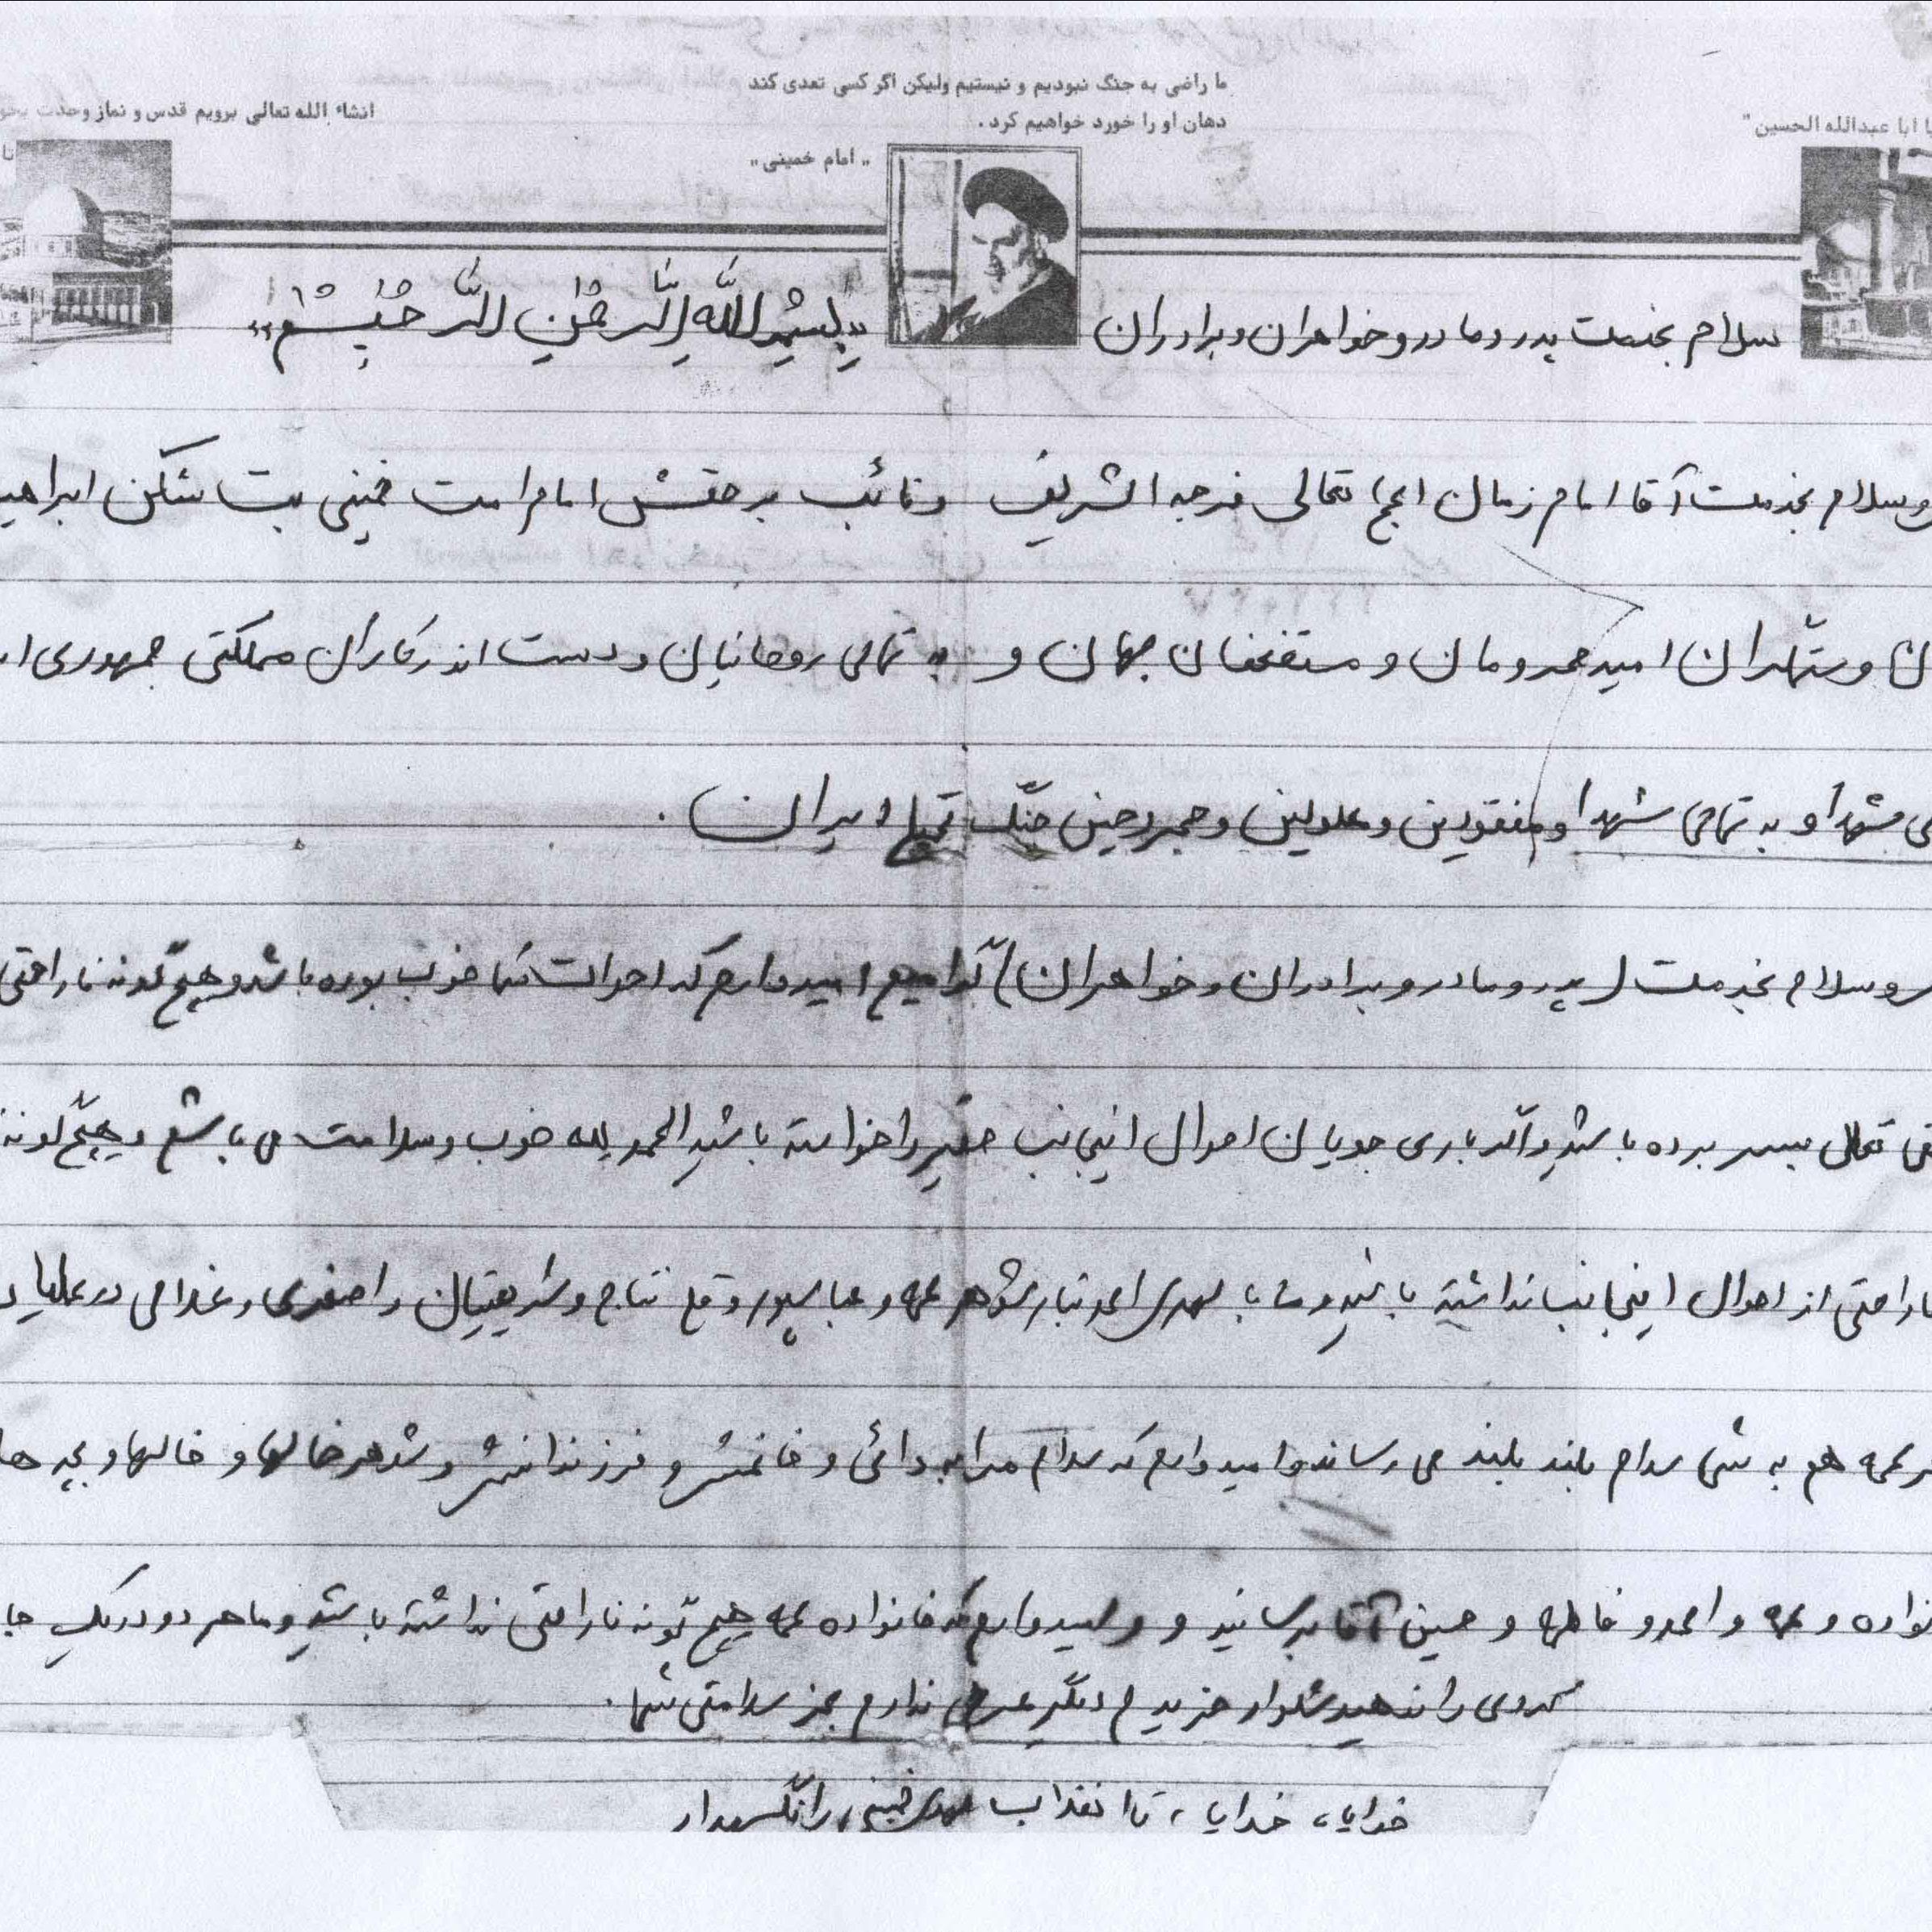 ما راضی به جنگ نبودیم و نیستیم ولیکن اگر کسی تعدی کند
دهان او را خورد خواهیم کرد .
„ امام خمینی „
ابا عبدالله الحسین "
انشاء الله تعالی برویم قدس و نماز وحدت
سلام بخدمت پدر و مادر و خواهران و برادران
„ بِسْمِ اللَّهِ الرَّحْمنِ الرَّحیم „
وسلام بخدمت آقا امام زمان عج تعالی فرجه الشریف و نائب بر حقش امام امت خمینی بت شکن
امید محرومان و مستضعفان جهان و به تمامی روحانیان و دست اندرکاران مملکتی جمهوری
شهدا و به تمامی شهدا و مفقودین و معلولین و مجروحین جنگ ایران .
وسلام بخدمت ( پدر و مادر و برادران و خواهران ) امیدوارم که احوالت شما خوب بوده باشد و هیچ گونه ناراحتی
تعالی بسر برده باشید و اگر باری جویان احوال اینجانب حقیر را خواسته باشید الحمد لله خوب و سلامت می باشم و هیچ گونه
ناراحتی از احوال اینجانب نداشته باشید و ما با مهدی شوهر عمه و عباسپور و شریفیان و اصغری و غلامی در
عمه هم به شما سلام بلند بلند می رساند و امیدوارم که سلام مرا به دائی و خانمش و فرزندانش و شوهر خالها و خالها و بچه ها
و عمه و احمد و فاطمه و حسین آقا برسانید و امیدوارم که خانواده عمه هیچ گونه ناراحتی نداشته باشید و ما هر دو در یک جا
شلوار خریدم دیگر عرضی ندارم بجز سلامتی شما .
خدایا ، خدایا ، تا انقلاب مهدی خمینی را نگهدار